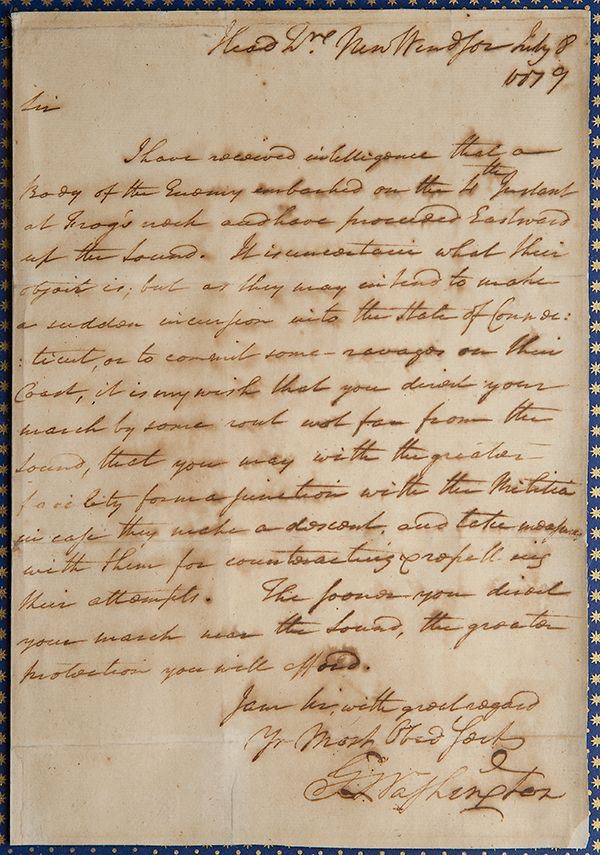 Head Qrs New Windsor July 8
1779
Sir
I have received intelligence that a
Body of the Enemy embarked on the 4th Instant
at Frog's neck and have proceeded Eastward
up the Sound. It is uncertain what their
object is; but as they may intend to make
a sudden incursion into the State of Connec:
:ticut, or to commit some ravages on their
Coast, it is my wish that you direct your
march by some rout not far from the
Sound, that you may with the greater
facility form a junction with the Militia
in case they make a descent, and take measures
with them for counteracting & repelling
their attempts. The sooner you direct
your march near the Sound, the greater
protection you will afford.
I am Sir, with great regard
Yr Most Obed Servt
Go Washington